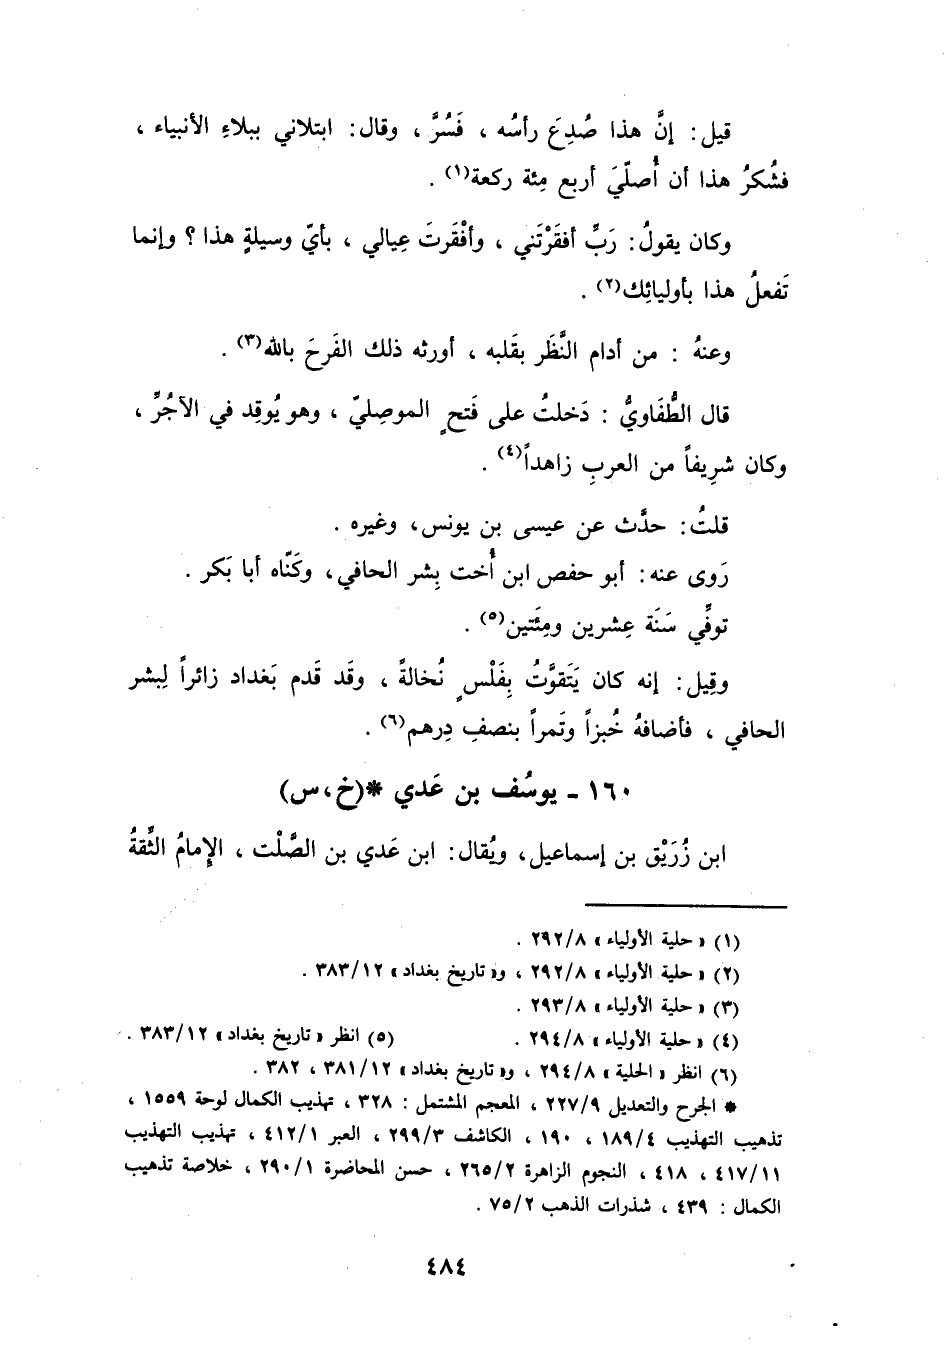 قيل: إنَّ هذا صُدِعَ رأسُه ، فَسُرَّ ، وقال: ابتلاني ببلاءِ الأنبياء ،
فشُكرُ هذا أن أُصلّيَ أربع مِئة ركعة(١) .
وكان يقولُ: رَبِّ أفقَرْتَني ، وأفْقَرتَ عِيالي ، بأيّ وسيلةٍ هذا ؟ وإنما
تَفعلُ هذا بأوليائِك(٢) .
وعنهُ : من أدام النَّظَر بقَلبه ، أورثه ذلك الفَرحَ بالله(٣) .
قال الطُّفَاويُّ : دَخلتُ على فَتحٍ الموصِليّ ، وهو يُوقِد في الآجُرِّ ،
وكان شرِيفاً من العربِ زاهداً(٤) .
قلتُ: حدَّث عن عيسى بن يونس، وغيره .
رَوى عنه: أبو حفص ابن أُخت بِشر الحافي، وكَنّاه أبا بَكر .
توفِّي سَنَة عِشرين ومِئَتين(٥) .
وقِيل: إنه كان يَتَقوَّتُ بِفَلْسٍ نُخالةً ، وقَد قَدم بَغداد زائراً لِبشر
الحافي ، فأضافهُ خُبزاً وتَمراً بنصفِ دِرهم(٦) .
١٦٠ ـ يوسُف بن عَدي *(خ،س)
ابن زُرَيْق بن إسماعيل، ويُقال: ابن عَدي بن الصَّلْت ، الإمامُ الثِّقةُ
(١) « حلية الأولياء » ٢٩٢/٨ .
(٢) « حلية الأولياء » ٢٩٢/٨ ، و« تاريخ بغداد » ٣٨٣/١٢ .
(٣) « حلية الأولياء » ٢٩٣/٨ .
(٤) « حلية الأولياء » ٢٩٤/٨ . (٥) انظر « تاريخ بغداد » ٣٨٣/١٢ .
(٦) انظر « الحلية » ٢٩٤/٨ ، و« تاريخ بغداد » ٣٨١/١٢ ، ٣٨٢ .
* الجرح والتعديل ٢٢٧/٩ ، المعجم المشتمل : ٣٢٨ ، تهذيب الكمال لوحة ١٥٥٩ ،
تذهيب التهذيب ١٨٩/٤ ، ١٩٠ ، الكاشف ٢٩٩/٣ ، العبر ٤١٢/١ ، تهذيب التهذيب
٤١٧/١١ ، ٤١٨ ، النجوم الزاهرة ٢٦٥/٢ ، حسن المحاضرة ٢٩٠/١ ، خلاصة تذهيب
الكمال : ٤٣٩ ، شذرات الذهب ٧٥/٢ .
٤٨٤